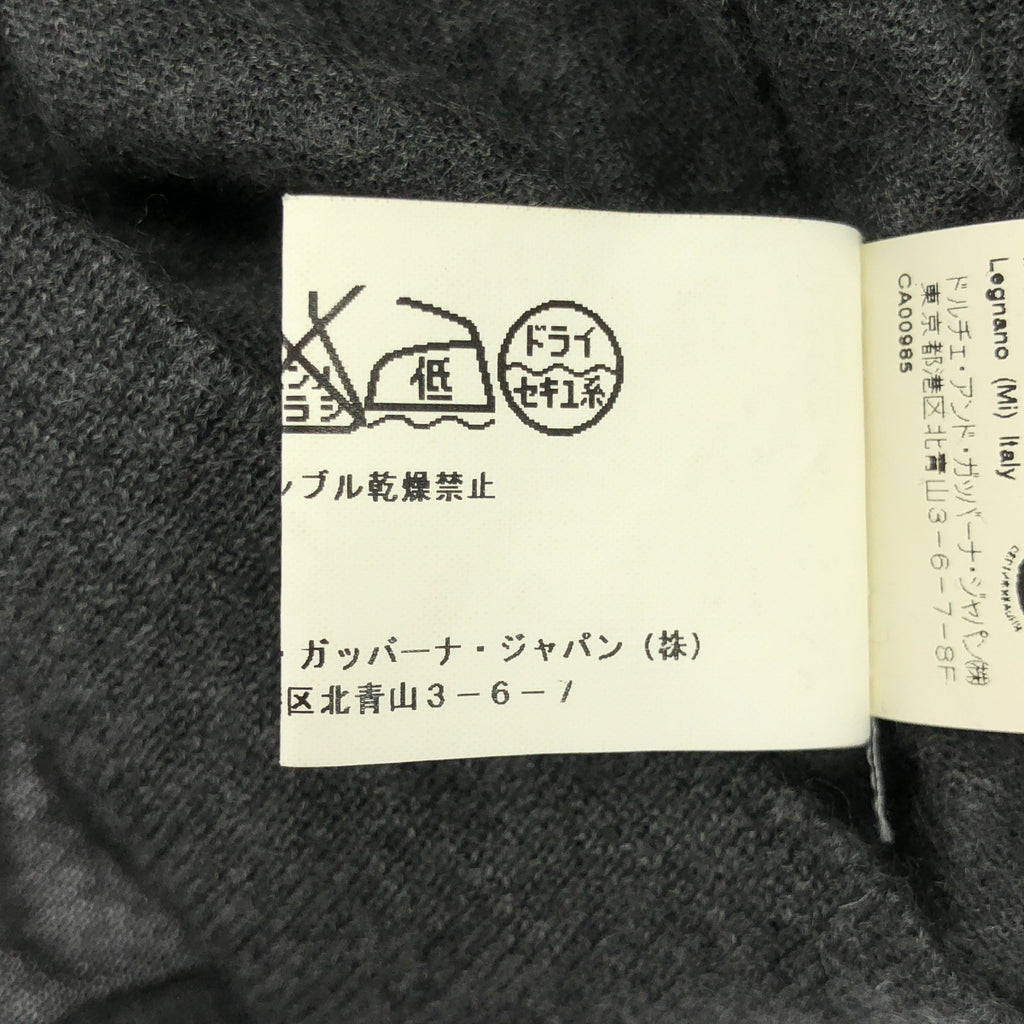 エンソ
サラシ
低
ドライ
セキユ系
ンブル乾燥禁止
・ガッバーナ・ジャパン（株）
区北青山3-6-7
Legnano (Mi) Italy
ドルチェ・アンド・ガッバーナ・ジャパン㈱
東京都港区北青山3-6-7-8F
CA00985